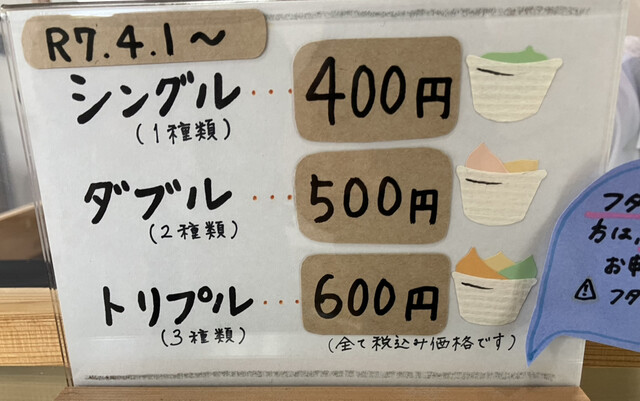 R7.4.1～
シングル・・・400円
(1種類)
ダブル・・・500円
(2種類)
トリプル・・・600円
(3種類)
(全て税込み価格です)
フタ
方は、
お申
⚠フタ